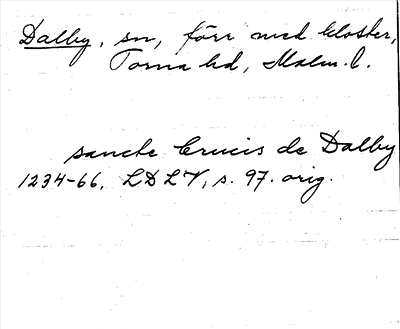 Dalby, sn, förr med kloster,
Torna hd, Malm. l.
sancte Crucis de Dalby
1234-66, LDLV, s. 97. orig.